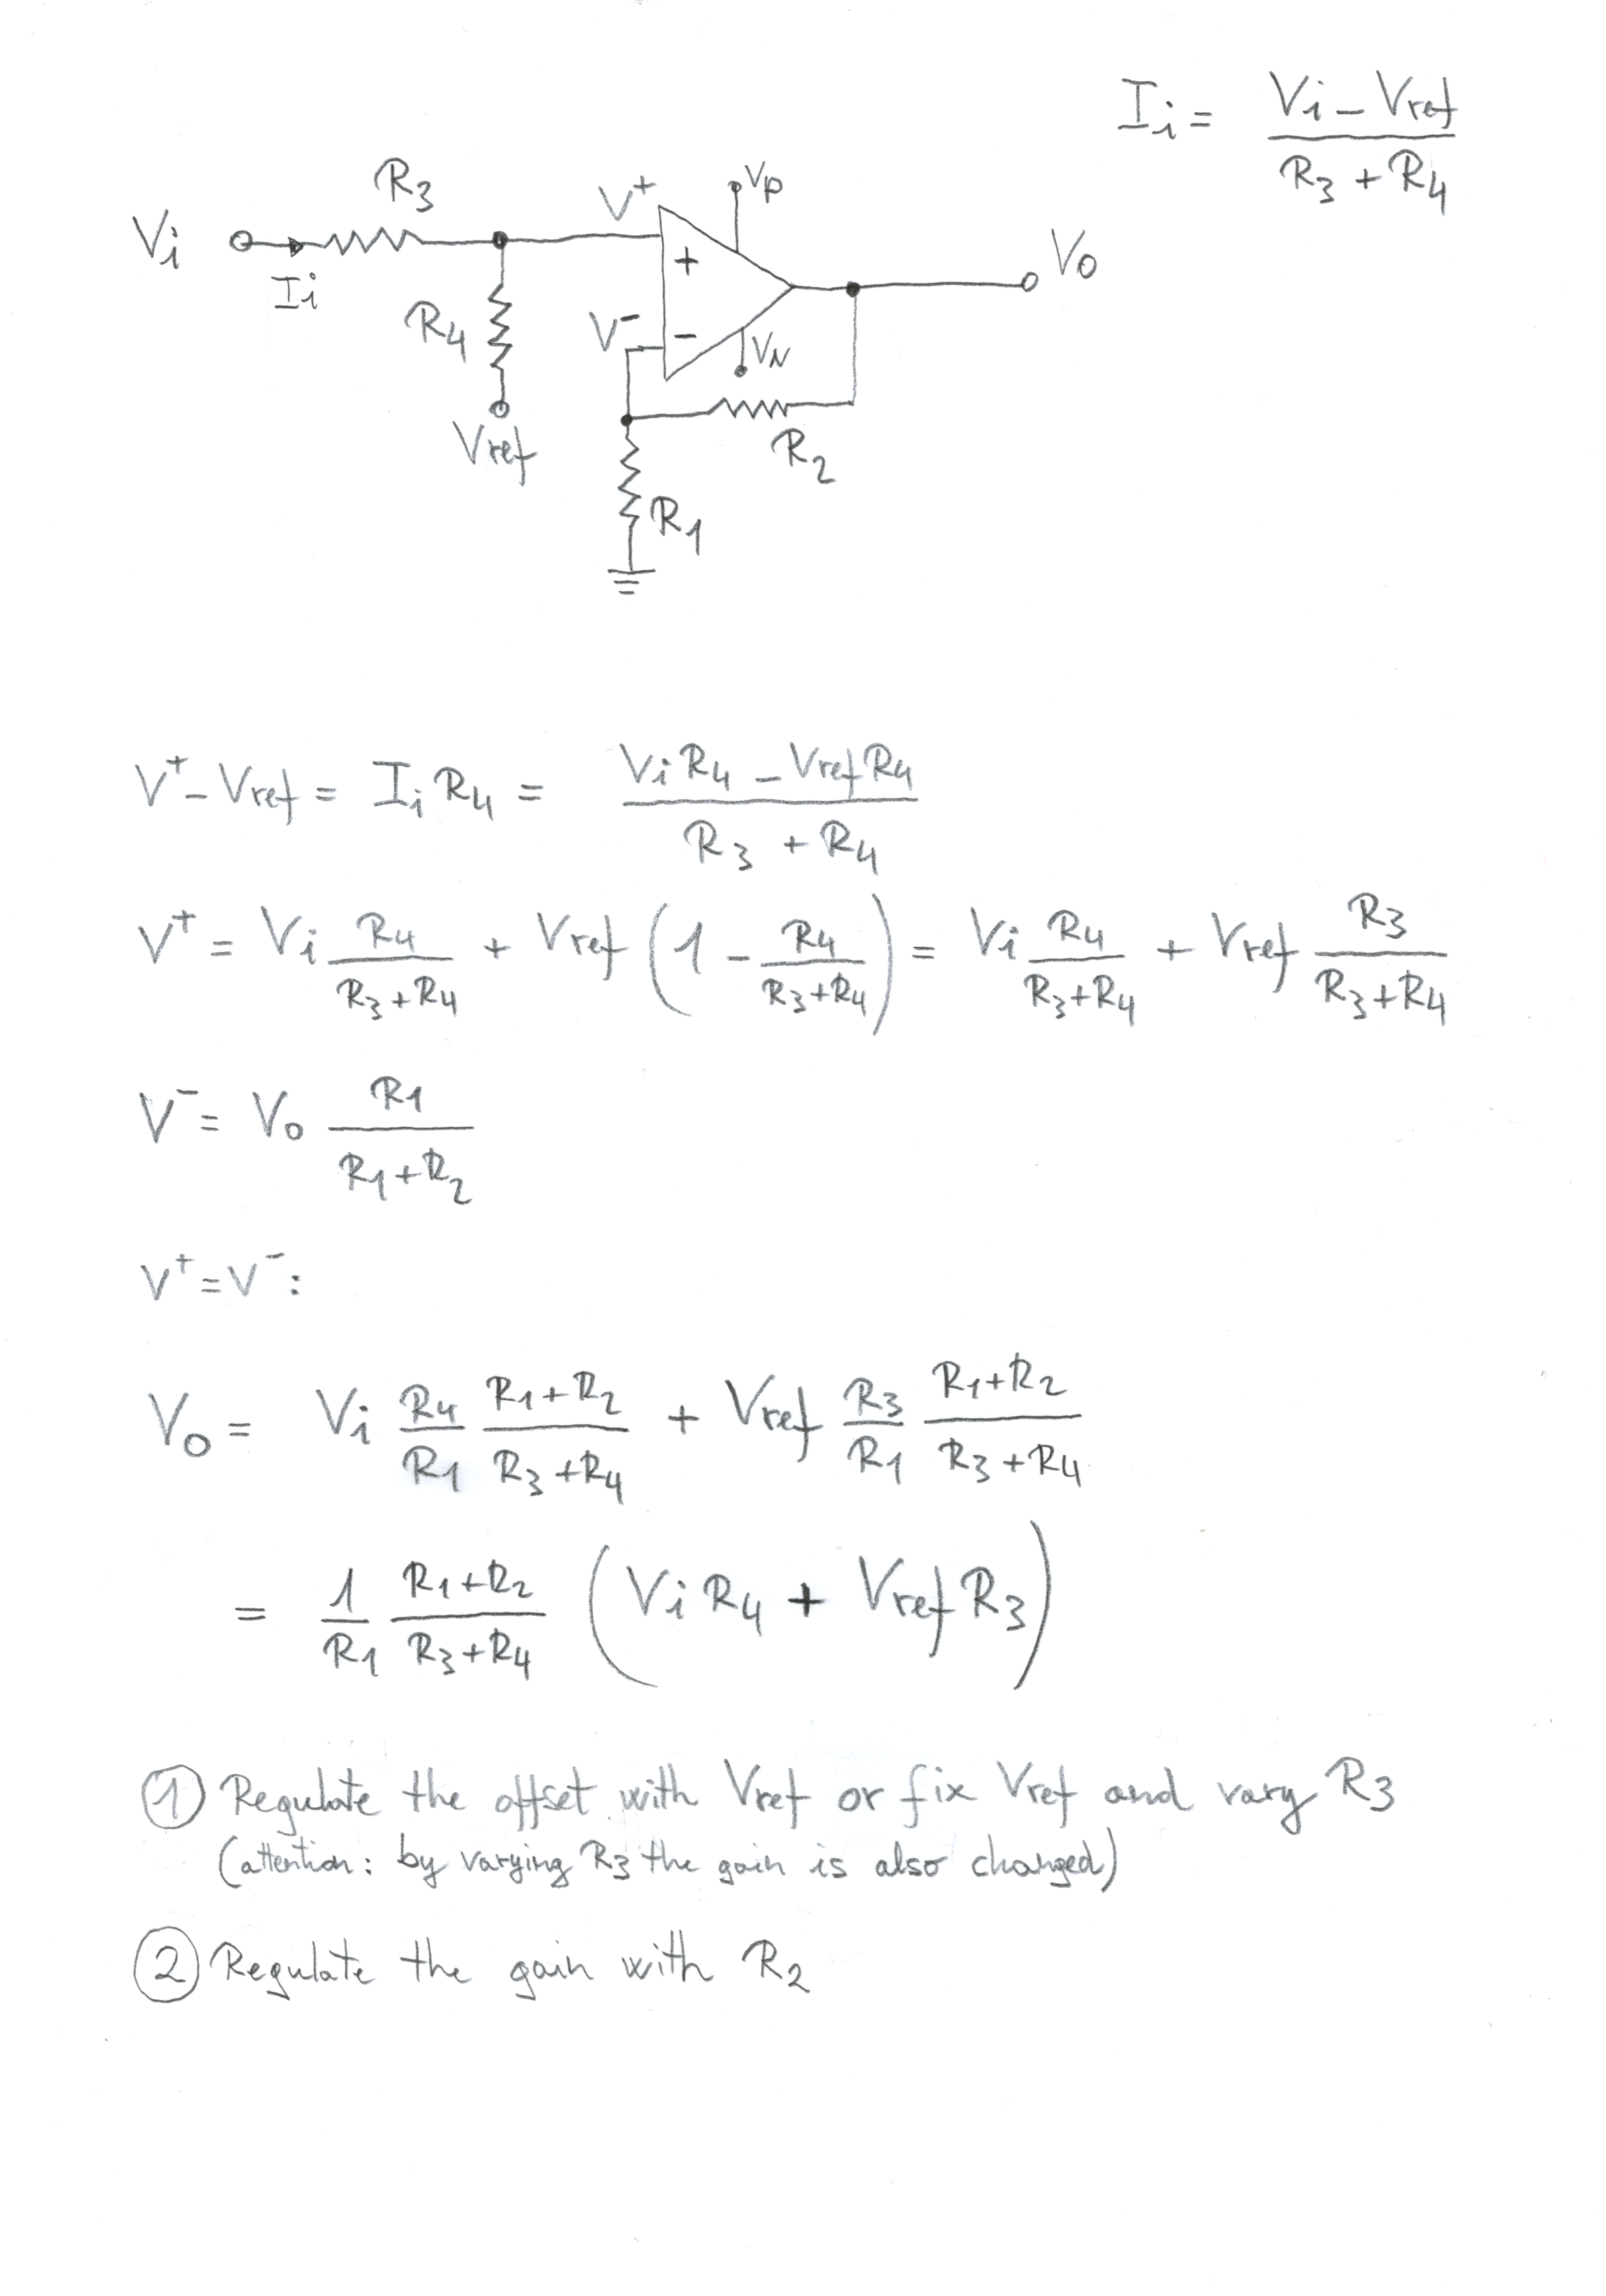 Ii = (Vi - Vref) / (R3 + R4)
R3
V+
Vp
Vi
Ii
Vo
R4
V-
VN
Vref
R2
R1
V+ - Vref = Ii R4 = (Vi R4 - Vref R4) / (R3 + R4)
V+ = Vi R4 / (R3+R4) + Vref (1 - R4 / (R3+R4)) = Vi R4 / (R3+R4) + Vref R3 / (R3+R4)
V- = Vo R1 / (R1+R2)
V+ = V- :
Vo = Vi R4/R1 (R1+R2)/(R3+R4) + Vref R3/R1 (R1+R2)/(R3+R4)
= 1/R1 (R1+R2)/(R3+R4) (Vi R4 + Vref R3)
① Regulate the offset with Vref or fix Vref and vary R3
(attention: by varying R3 the gain is also changed)
② Regulate the gain with R2